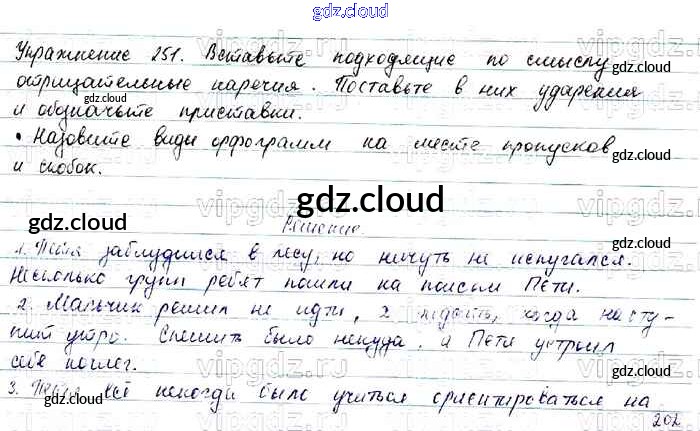 gdz.cloud
Упражнение 251. Вставьте подходящие по смыслу
отрицательные наречия. Поставьте в них ударения
и обозначьте приставки.
• Назовите виды орфограмм на месте пропусков
и скобок.
Решение
1. Петя заблудился в лесу, но ничуть не испугался.
Несколько групп ребят пошли на поиски Пети.
2. Мальчик решил не идти, а подождать, когда насту-
пит утро. Спешить было некуда, и Петя устроил
себе ночлег.
3. Пете всё некогда было учиться ориентироваться на
202